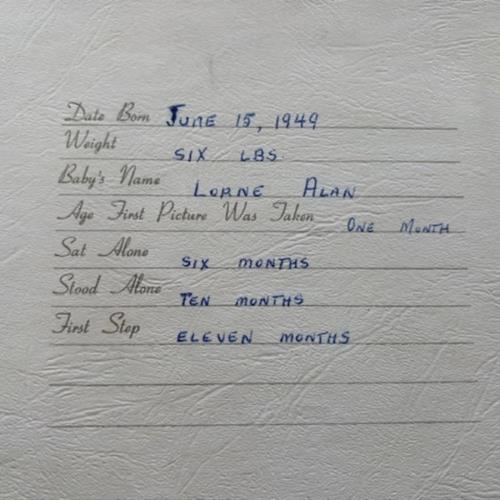 Date Born June 15, 1949
Weight SIX LBS.
Baby's Name LORNE ALAN
Age First Picture Was Taken ONE MONTH
Sat Alone SIX MONTHS
Stood Alone TEN MONTHS
First Step ELEVEN MONTHS